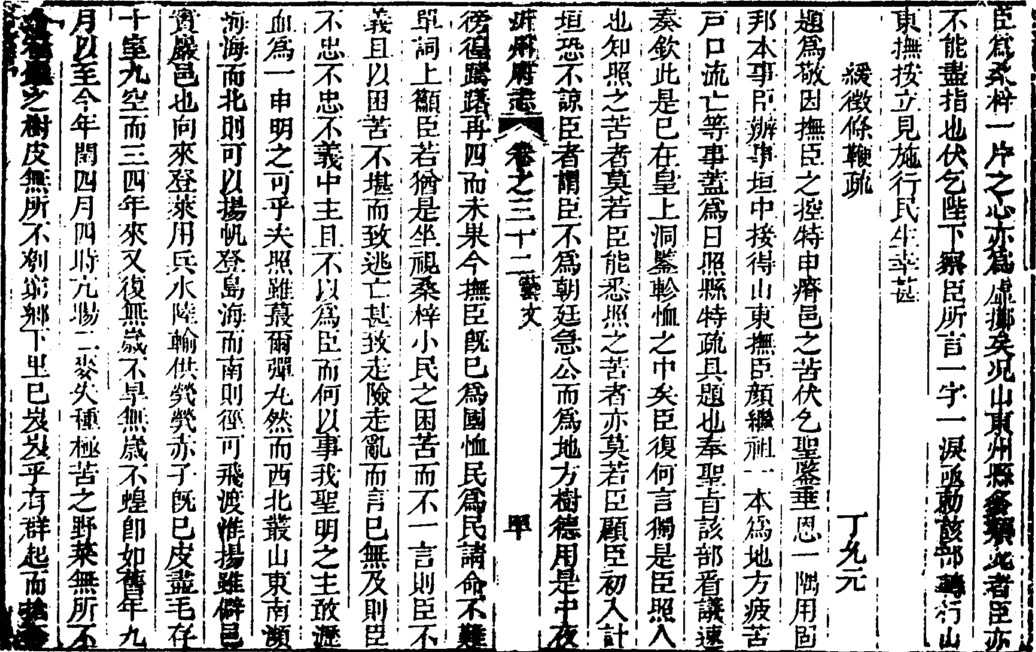 臣爲桑梓一片之心亦爲虛擲矣况山東州縣多類此者臣亦
不能盡指也伏乞陛下察臣所言一字一淚亟勅該部轉行山
東撫按立見施行民生幸甚
緩徵條鞭疏　丁允元
題爲敬因撫臣之控特申瘠邑之苦伏乞聖鑒垂恩一隅用固
邦本事臣辦事垣中接得山東撫臣顏繼祖一本爲地方疲苦
戸口流亡等事蓋爲日照縣特疏具題也奉聖旨該部看議速
奏欽此是已在皇上洞鑒軫恤之中矣臣復何言獨是臣照人
也知照之苦者莫若臣能悉照之苦者亦莫若臣顧臣初入計
垣恐不諒臣者謂臣不爲朝廷急公而爲地方樹德用是中夜
沂州府志　卷之三十二　藝文　單
徬徨躊躇再四而未果今撫臣旣已爲國恤民爲民請命不難
單詞上顲臣若猶是坐視桑梓小民之困苦而不一言則臣不
義且以困苦不堪而致逃亡甚致走險走亂而言已無及則臣
不忠不忠不義中主且不以爲臣而何以事我聖明之主敢瀝
血爲一申明之可乎夫照雖蕞爾彈丸然而西北叢山東南瀕
海海而北則可以揚帆登島海而南則徑可飛渡淮揚雖僻邑
實嚴邑也向來登萊用兵水陸輸供煢煢赤子旣已皮盡毛存
十室九空而三四年來又復無歲不旱無歲不蝗卽如舊年九
月以至今年閏四月四時亢暘二麥失種極苦之野菜無所不
之樹皮無所不剝窮鄉下里已岌岌乎有群起而搶